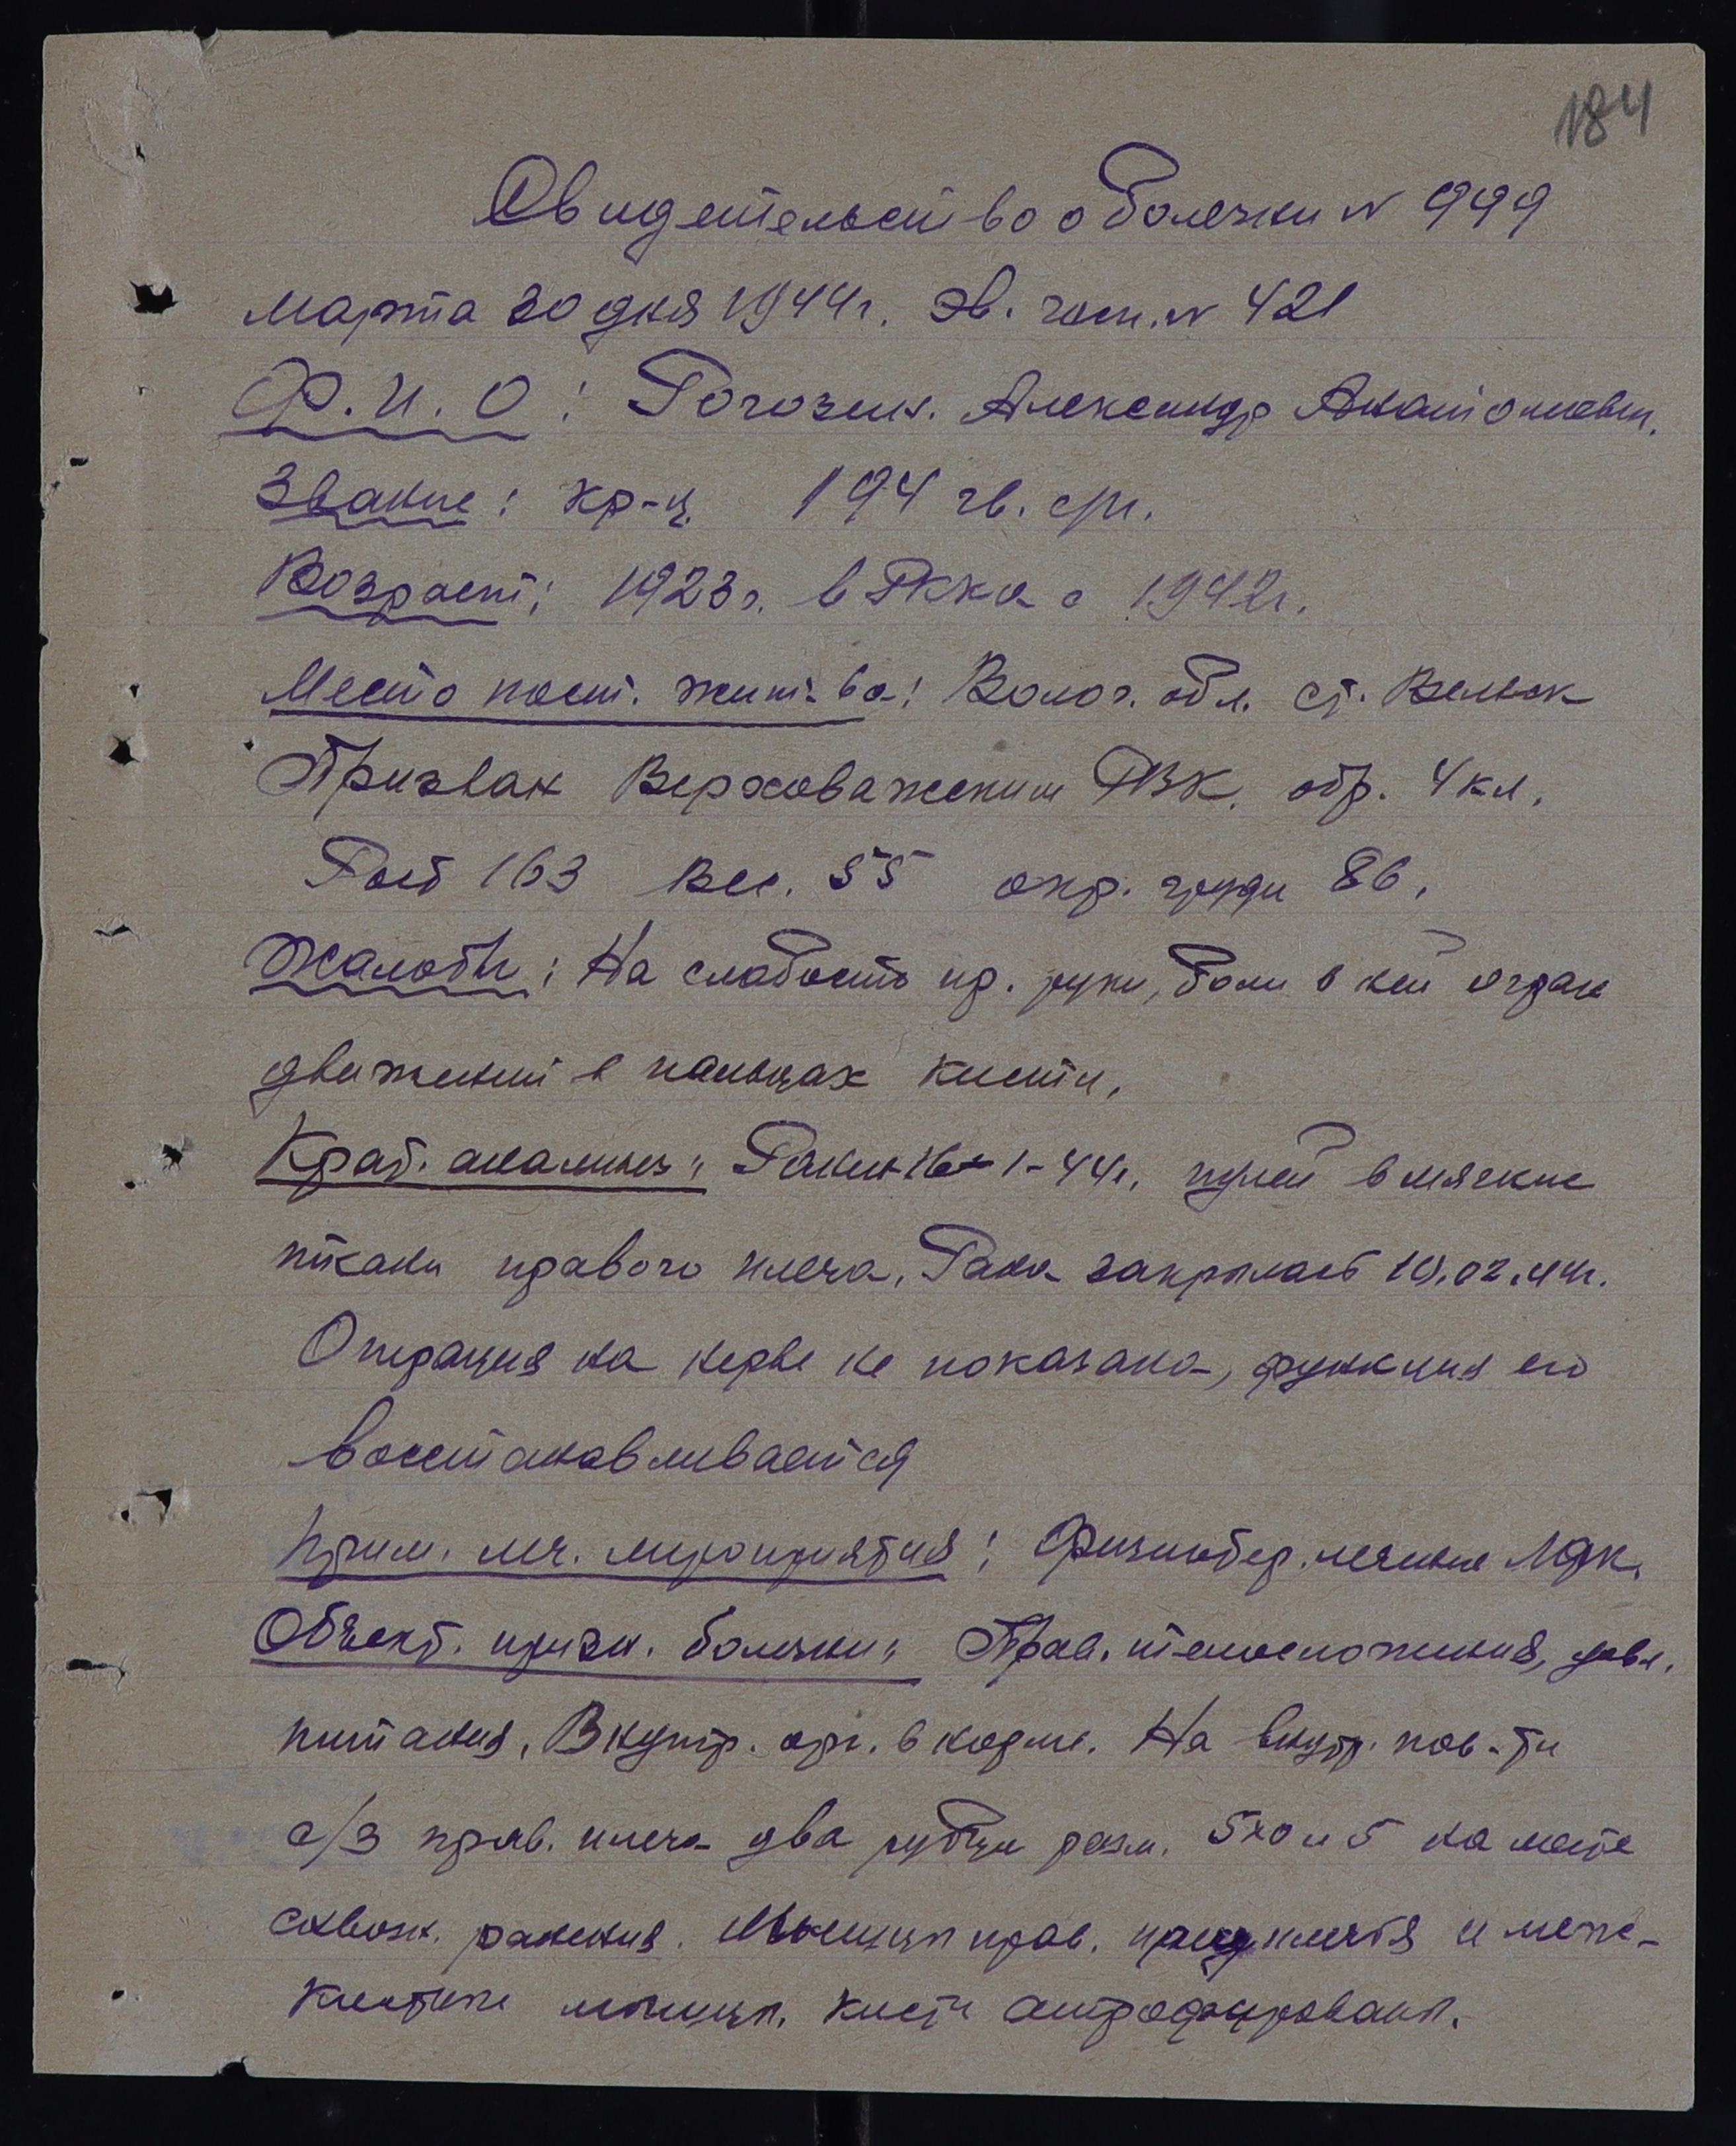 184
Свидетельство о болезни N 999
марта 30 дня 1944г. Эв. госп. N 421
Ф. И. О: Рогозин. Александр Анатолиевич.
Звание: кр-ц. 194 гв. сп.
Возраст: 1923г. в РККА с 1942г.
Место пост. жит-ва: Волог. обл. ст. Вельск
Призван Верховажским РВК. обр. 4 кл.
Рост 163 вес. 55 окр. груди 86.
Жалобы: На слабость пр. руки, боли в ней огран
движений в пальцах кисти.
Крат. анамнез: Ранен 16-1-44г. пулей в мягкие
ткани правого плеча. Рана закрылась 10.02.44г.
Операция на нерве не показана, функция его
восстанавливается
Прим. леч. мероприятия: Физиотер. лечение ЛФК.
Объект. призн. болезни: Прав. телосложения, удовл.
питания. Внутр. орг. в норме. На внутр. пов-ти
с/з прав. плеча два рубца разм. 5х0 и 5 на месте
сквозн. ранения. Мышцы прав. предплечья и меж-
костные мышцы. кисти атрофированы.